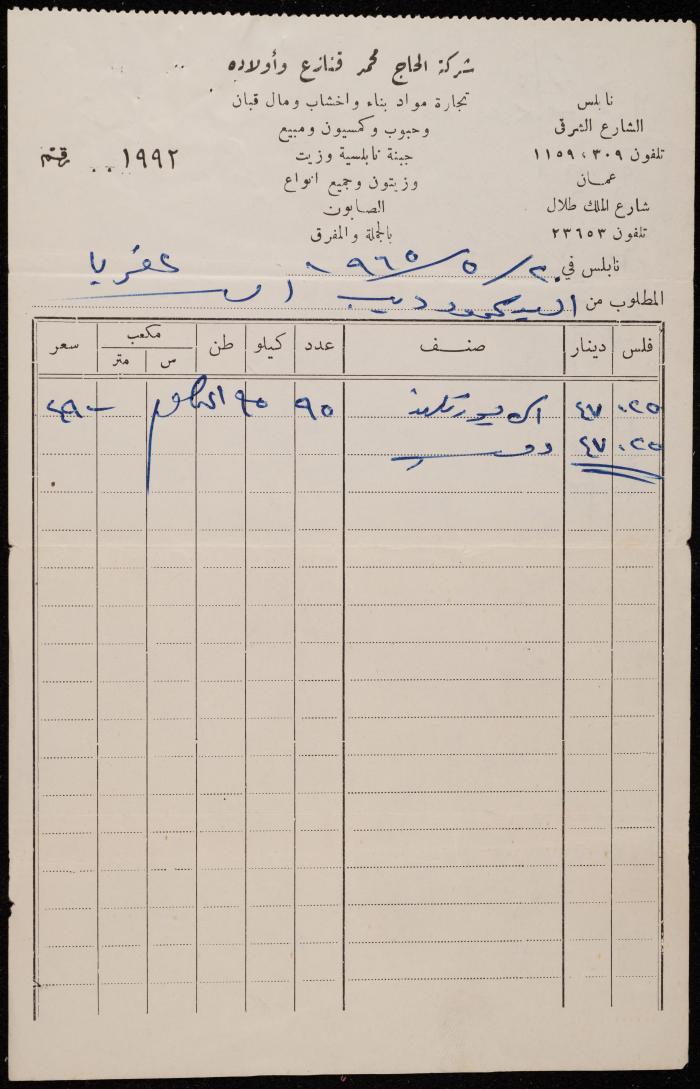 شركة الحاج محمد قنازع وأولاده
تجارة مواد بناء واخشاب ومال قبان
وحبوب وكمسيون ومبيع
جبنة نابلسية وزيت
وزيتون وجميع انواع
الصابون
بالجملة والمفرق
نابلس
الشارع الشرقي
تلفون ٣٠٩ ، ١١٥٩
عمان
شارع الملك طلال
تلفون ٢٣٦٥٣
رقم ١٩٩٢
نابلس في ٢٠/ ٥ / ١٩٦٥
المطلوب من السيد محمود ديب
فلس دينار صنف عدد كيلو طن مكعب سعر
س متر
٠٢٥ ٤٧ ٩٥ ٩٥
٠٢٥ ٤٧